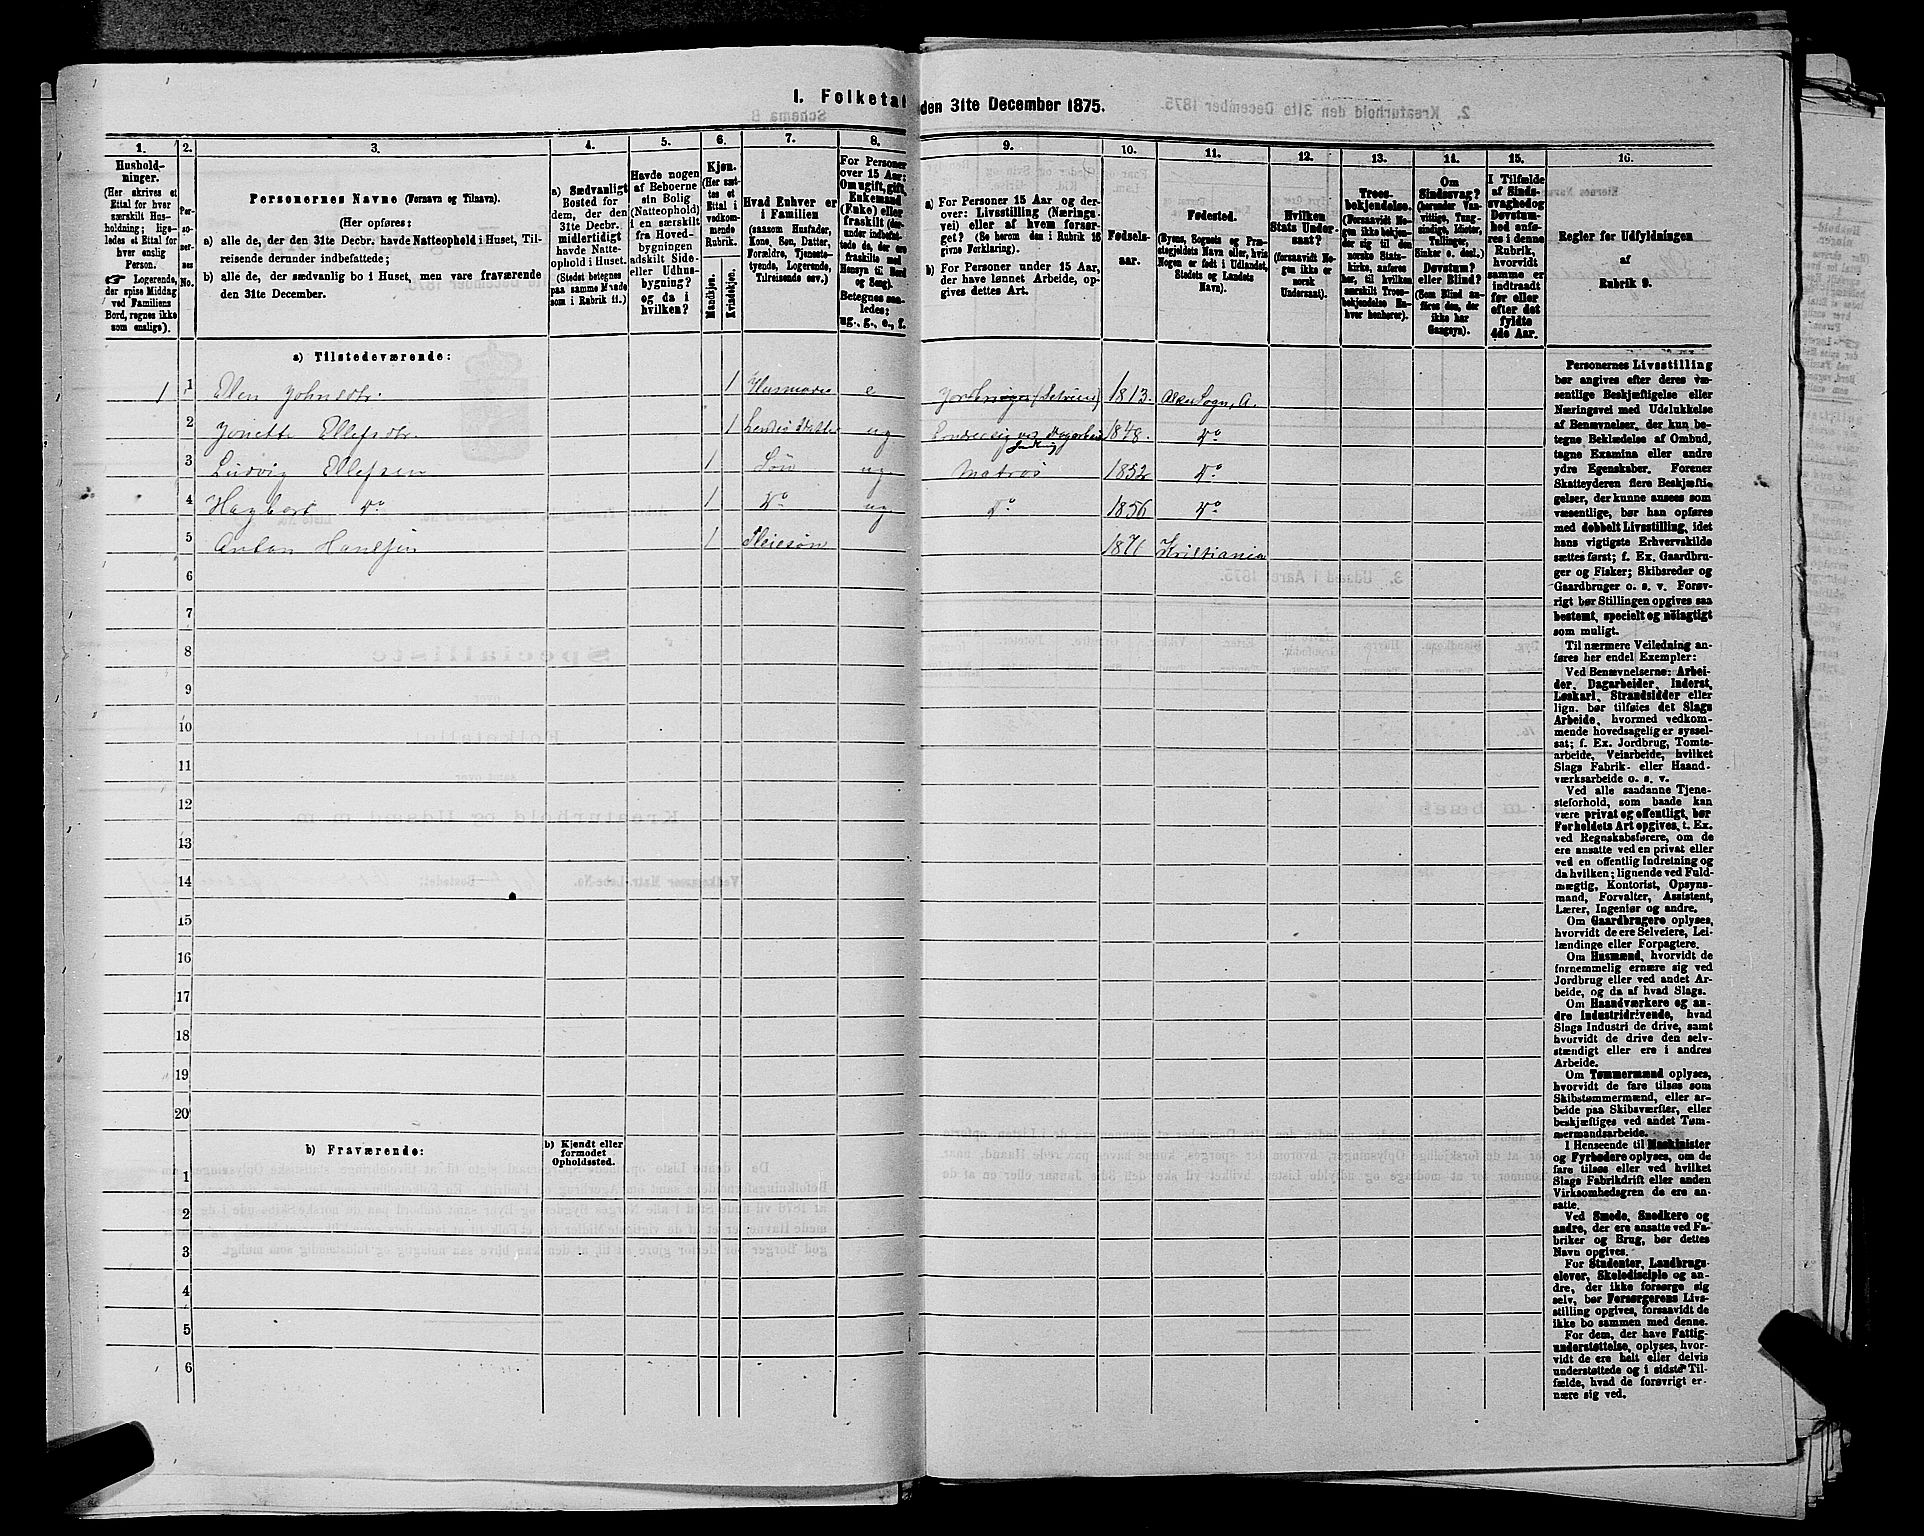 1. Folketal
den 31te December 1875.
1.
2.
3.
4.
5.
6.
7.
8.
9.
10.
11.
12.
13.
14.
15.
16.
Hushold-
ninger.
(Her skrives et
Ettal for hver
særskilt Hus-
holdning; lige-
ledes et Ettal for
hver enslig
Person.
☞ Logerende,
der spise Middag
ved Familiens
Bord, regnes ikke
som enslige).
Per-
so-
ner-
nes
No.
Personernes Navne (Fornavn og Tilnavn).
(Her opføres:
a) alle de, der den 31te Decbr. havde Natteophold i Huset, Til-
reisende derunder indbefattede;
b) alle de, der sædvanlig bo i Huset, men vare fraværende
den 31te December.
a) Sædvanligt
Bosted for
dem, der den
31te Decbr.
midlertidigt
havde Natte-
ophold i Huset.
(Stedet betegnes
paa samme Maade
som i Rubrik 11.)
Havde nogen
af Beboerne
sin Bolig
(Natteophold)
i en særskilt
fra Hoved-
bygningen
adskilt Side-
eller Udhus-
bygning?
og da i
hvilken?
Kjøn.
(Her sæt-
tes et
Ettal i
vedkom-
mende
Rubrik.
Mandkjøn.
Kvindekjøn.
Hvad Enhver er
i Familien
(saasom Husfader,
Kone, Søn, Datter,
Forældre, Tjeneste-
tyende, Logerende,
Tilreisende osv.)
For Personer
over 15 Aar:
Om ugift, gift,
Enkemand
(Enke) eller
fraskilt (der-
under indbefat-
tede de, der ere
fraskilte med
Hensyn til Bord
og Seng).
Betegnes saa-
ledes:
ug., g., e., f.
a) For Personer 15 Aar og der-
over: Livsstilling (Nærings-
vei) eller af hvem forsør-
get? (Se herom den i Rubrik 16
givne Forklaring).
b) For Personer under 15 Aar,
der have lønnet Arbeide, op-
gives dettes Art.
Fødsels-
aar.
Fødested.
(Byens, Sognets og Præ-
stegjeldets Navn eller, hvis
Nogen er født i Udlandet,
Stedets og Landets
Navn).
Hvilken
Stats Under-
saat?
(forsaavidt No-
gen ikke er
norsk
Undersaat).
Troes-
bekjendelse.
(Forsaavidt No-
gen ikke bekjen-
der sig til den
norske Stats-
kirke, anføres
her, til hvilken
særskilt Troes-
bekjendelse En-
hver henhører).
Om
Sindssvag?
(herunder Van-
vittige, Tung-
sindige, Idioter,
Tullinger,
Sinker o. desl.)
Døvstum?
eller Blind?
(Som Blind an-
føres den, der
ikke har
Gangsyn).
I Tilfælde
af Sinds-
svaghed og
Døvstum-
hed anfø-
res i denne
Rubrik,
hvorvidt
samme er
indtraadt
før eller
efter det
fyldte
4de Aar.
Regler for Udfyldningen
af
Rubrik 9.
a) Tilstedeværende:
1 1 Ellen Johnsdtr. 1 e 1813. A.
2 Ellefsdtr. 1 ug 1848. Do
3 Ludvig Ellefsen 1 Søn ug Matros 1852 Do
4 Do 1 Do ug Do 1856 Do
5 Anton Hansen 1 Pleiesøn 1871 Kristiania
6
7
8
9
10
11
12
13
14
15
16
17
18
19
20
b) Fraværende:
b) Kjendt eller
formodet
Opholdssted.
1
2
3
4
5
6
Personernes Livsstilling
bør angives efter deres væ-
sentlige Beskjæftigelse eller
Næringsvei med Udelukkelse
af Benævnelser, der kun be-
tegne Beklædelse af Ombud,
tagne Examina eller andre
ydre Egenskaber. Forener
Skatteyderen flere Beskjæfti-
gelser, der kunne ansees som
væsentlige, bør han opføres
med dobbelt Livsstilling, idet
hans vigtigste Erhvervskilde
sættes først; f. Ex. Gaardbru-
ger og Fisker; Skibsreder og
Gaardbruger o. s. v. Forøv-
rigt bør Stillingen opgives saa
bestemt, specielt og nøiagtigt
som muligt.
Til nærmere Veiledning an-
føres her endel Exempler:
Ved Benævnelserne: Arbei-
der, Dagarbeider, Inderst,
Løskarl, Strandsidder eller
lign. bør tilføies det Slags
Arbeide, hvormed vedkom-
mende hovedsagelig er syssel-
sat; f. Ex. Jordbrug, Tomte-
arbeide, Veiarbeide, hvilket
Slags Fabrik- eller Haand-
værksarbeide o. s. v.
Ved alle saadanne Tjene-
steforhold, som baade kan
være privat og offentligt, bør
Forholdets Art opgives, t. Ex.
ved Regnskabsførere, om de
ere ansatte ved en privat eller
ved en offentlig Indretning og
da hvilken; lignende ved Fuld-
mægtig, Kontorist, Opsyns-
mand, Forvalter, Assistent,
Lærer, Ingeniør og andre.
Om Gaardbrugere oplyses,
hvorvidt de ere Selveiere, Lei-
lændinge eller Forpagtere.
Om Husmænd, hvorvidt de
fornemmelig ernære sig ved
Jordbrug eller ved andet Ar-
beide, og da af hvad Slags.
Om Haandværkere og an-
dre Industridrivende, hvad
Slags Industri de drive, samt
hvorvidt de drive den selv-
stændigt eller ere i andres
Arbeide.
Om Tømmermænd oplyses,
hvorvidt de fare tilsøs som
Skibstømmermænd, eller ar-
beide paa Skibsværfter, eller
beskjæftiges ved andet Tøm-
mermandsarbeide.
I Henseende til Maskinister
og Fyrbødere oplyses, om de
fare tilsøs eller ved hvilket
Slags Fabrikdrift eller anden
Virksomhedsgren de ere an-
satte.
Ved Smede, Snedkere og
andre, der ere ansatte ved Fa-
briker og Brug, bør dettes
Navn opgives.
For Studenter, Landbrugs-
elever, Skoledisciple og an-
dre, der ikke forsørge sig
selv, bør Forsørgerens Livs-
stilling opgives, forsaavidt de
ikke bo sammen med denne.
For dem, der have Fattig-
understøttelse, oplyses, hvor-
vidt de ere helt eller delvis
understøttede og i sidste Til-
fælde, hvad de forøvrigt er-
nære sig ved.